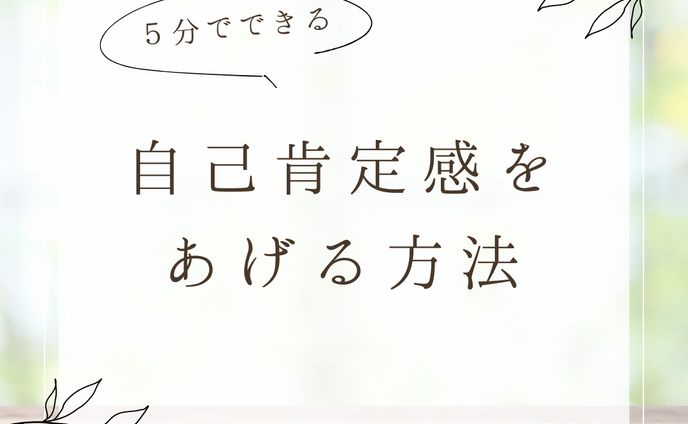 5分でできる
自己肯定感を
あげる方法